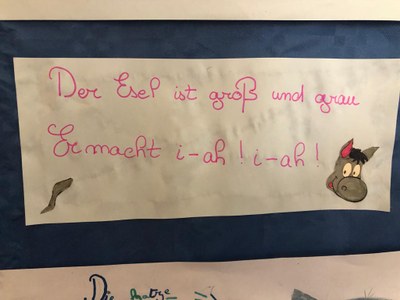 Der Esel ist groß und grau
Er macht i-ah! i-ah!
Die